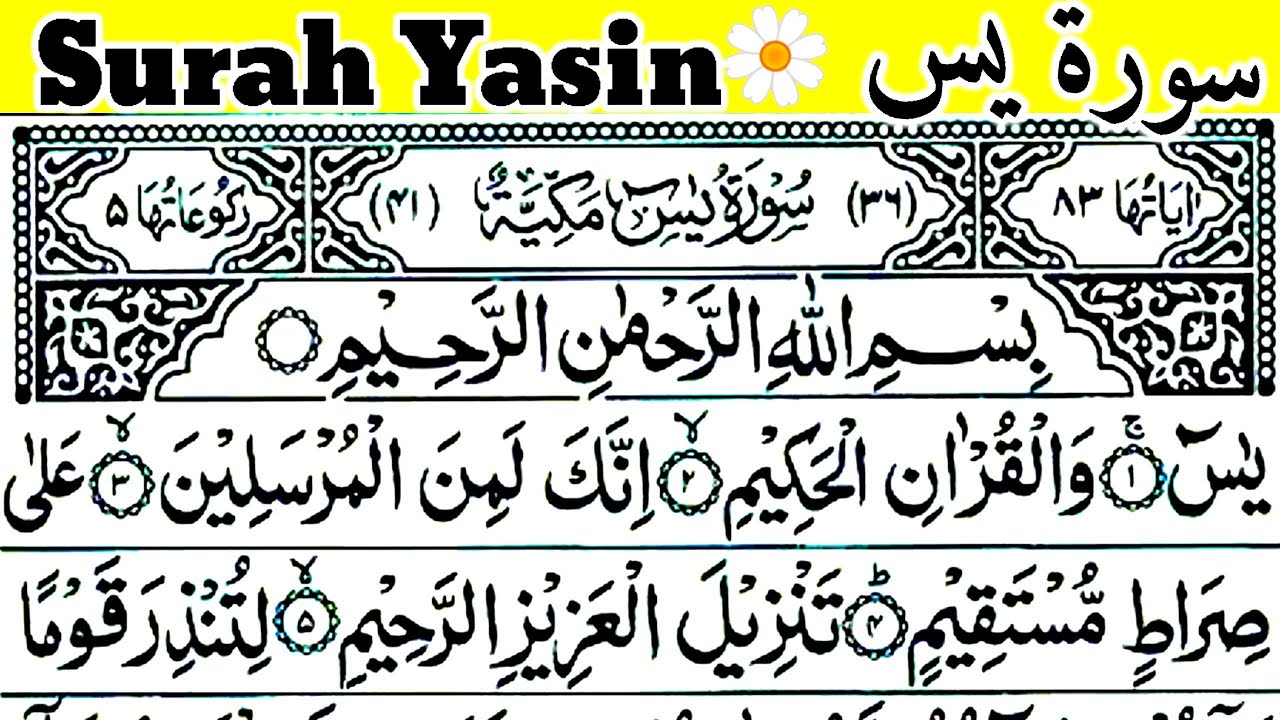 Surah Yasin سورة يس
اٰیَاتُهَا ۸۳ (۳۶) سُوْرَةُ یٰسٓ مَكِّیَّةٌ (۴۱) رُكُوْعَاتُهَا ۵
بِسْمِ اللّٰهِ الرَّحْمٰنِ الرَّحِیْمِ
یٰسٓ ۚ﴿۱﴾ وَالْقُرْاٰنِ الْحَكِیْمِ ۙ﴿۲﴾ اِنَّكَ لَمِنَ الْمُرْسَلِیْنَ ۙ﴿۳﴾ عَلٰی
صِرَاطٍ مُّسْتَقِیْمٍ ؕ﴿۴﴾ تَنْزِیْلَ الْعَزِیْزِ الرَّحِیْمِ ۙ﴿۵﴾ لِتُنْذِرَ قَوْمًا